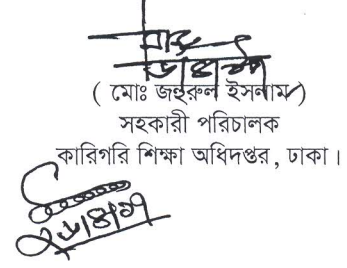 ( মোঃ জহুরুল ইসলাম )
সহকারী পরিচালক
কারিগরি শিক্ষা অধিদপ্তর , ঢাকা।